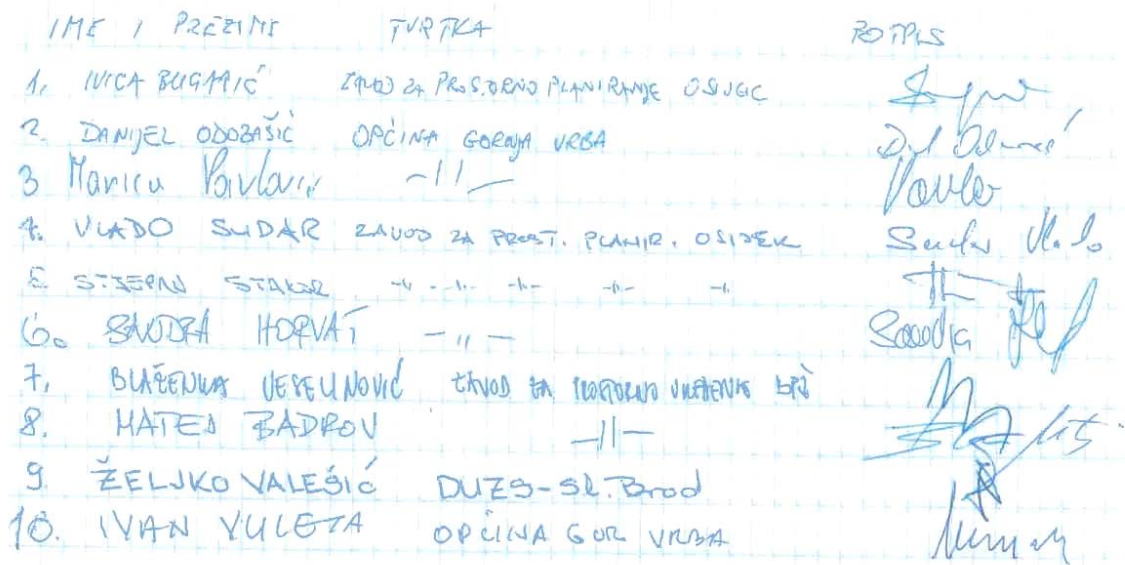 IME I PREZIME TVRTKA POTPIS
1. IVICA BUGARIĆ ZAVOD ZA PROSTORNO PLANIRANJE OSIJEK
2. DANIJEL ODOBAŠIĆ OPĆINA GORNJA VRBA
3 Marica Pavlović -11- Pavlov
4. VLADO SUDAR ZAVOD ZA PROST. PLANIR. OSIJEK Sudar Vlado
5. STJEPAN STAKOR -11- -11- -11- -11- -11-
6. SANDRA HORVAT -11- Sandra
7. BLAŽENKA VESELINOVIĆ ZAVOD ZA PROSTORNO UREĐENJE BPŽ
8. MATEJ BADROV -11-
9. ŽELJKO VALEŠIĆ DUZS-Sl. Brod
10. IVAN VULETA OPĆINA GOR VRBA